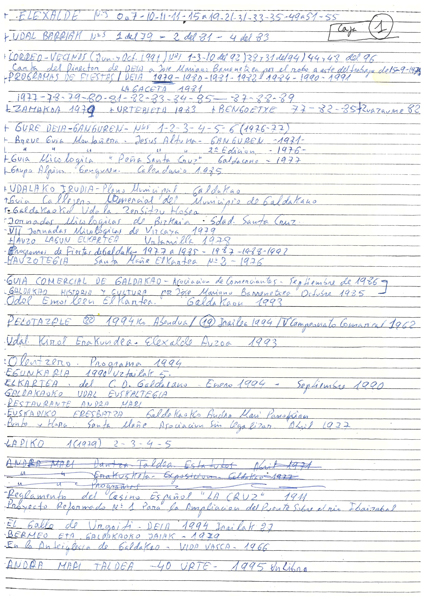 ELEXALDE Nºs 0a7-10-11-11-15a19-21-31-33-35-49a51-55
Caja 1
UDAL BARRIAK Nºs 1 del 79 - 2 del 81 - 4 del 83
CORREO-VECINOS (Jun-Oct. 1991) Nºs 1-3-10 del 92
Carta del Director de DEIA a Jose Mariano Barrenetxea por el
PROGRAMAS DE FIESTAS/DEIA 1979-1980-1981-1983/1984-1990-1991
LA GACETA 1981
1977-78-79-80-81-82-33-34-85-87-88-89
ZAMAKOA 1979 URTEBIETA 1983 BENGOETXE 77-82-85
GURE DEIA-GANGUREN-Nºs 1-2-3-4-5-6 (1976-77)
Jesus Altuna-GANGUREN-1971-
" " " 2ª Edicion -1976-
Guia Micologica "Peña Santa Cruz" Galdacano-1977
Grupo Alpino Ganguren Calendario 1985
UDALAKO IRUDIA-Pleno Municipal Galdakao
Guia Callejero Comercial del Municipio de Galdakao
Galdakaoko Udala Zentsitu Hasera
Jornadas Micologicas de Bizkaia-Sdad. Santa Cruz
VII Jornadas Micologicas de Vizcaya 1979
HAUZO LAGUN ELKARTEA 1978
Programas de Fiestas Galdakao 1977 a 1985-1987-1988-1992
HAUZOTEGIA Santa Maria Elkartea Nº 3-1976
GUIA COMERCIAL DE GALDAKAO-Asociacion de Comerciantes-Septiembre de 1986
GALDAKAO HISTORIA Y CULTURA por Jose Mariano Barrenetxea Octubre 1985
Odol Emaileen Elkartea. Galdakao 1993
PELOTAZALE 20 1994ko Abendua/19 Inailea 1994/V Campeonato Comarcal 1962
Udal Kirol Enakundea-Elexalde Auzoa 1993
Olentzero-Programa 1994
EGUNKARIA 1990 Uztailak 5.
ELKARTEA del C.D. Galdacano-Enero 1994-Septiembre 1990
GALDAKAOKO UDAL EUSKALTEGIA
RESTAURANTE ANDRA MARI
EUSKADIKO Galdakaoko Andra Mari
Punto y Hora Santa Maria Asociacion Sin Abril 1977
LAPIKO 1(1979) 2-3-4-5
ANDRA MARI Dantza Taldea Estatutos Abril 1971
" " Erakusketa-Exposicion Galdakao 1977
" " Programas
Reglamento del Casino Español "LA CRUZ" 1911
Proyecto Reformado Nº 1 Para la Ampliacion del Puente Sobre el rio Ibaizabal
El Gallo de Usansolo-DEIA 1994 Inailak 27
BERMEO ETA GALDAKAOKO JAIAK-1979
En la Anteiglesia de Galdakao-VIDA VASCA-1966
ANDRA MARI TALDEA-40 URTE-1995